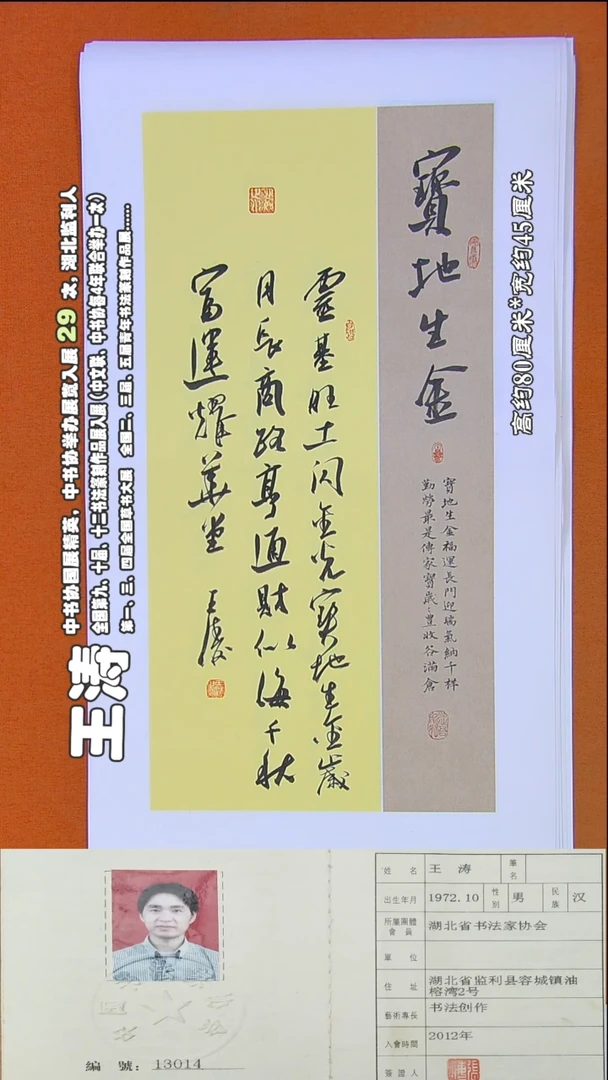 寶地生金
寶地生金福運長門迎瑞氣納千祥
勤勞最是傳家寶歲〻豐收谷滿倉
靈基旺土闪金光寶地生金歲
月長商路亨通財似海千秋
富運耀華堂 王涛
高约80厘米*宽约45厘米
中书协国展精英，中书协举办展赛入展 29 次，湖北监利人
全国第九、十届、十二书法篆刻作品展入展（中文联、中书协每4年联合举办一次）
第一、三、四届全国 书大展 全国二、三届、五届青年书法篆刻作品展......
王涛
編 號：13014
姓 名 王 涛 筆名
出生年月 1972.10 性別 男 民族 汉
所屬團體會員 湖北省书法家协会
單 位
住 址 湖北省监利县容城镇油
榕湾2号
藝術專長 书法创作
入會時間 2012年
簽證人